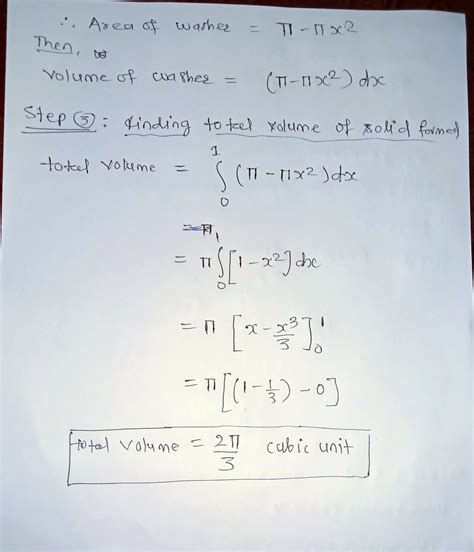 ∴ Area of washer = π - πx²
Then,
Volume of washer = (π-πx²) dx
Step ③: finding total volume of solid formed
total volume = ∫₀¹ (π - πx²) dx
= π
= π ∫₀¹ [1-x²] dx
= π [x - x³/3]₀¹
= π [(1 - 1/3) - 0]
total volume = 2π/3 cubic unit